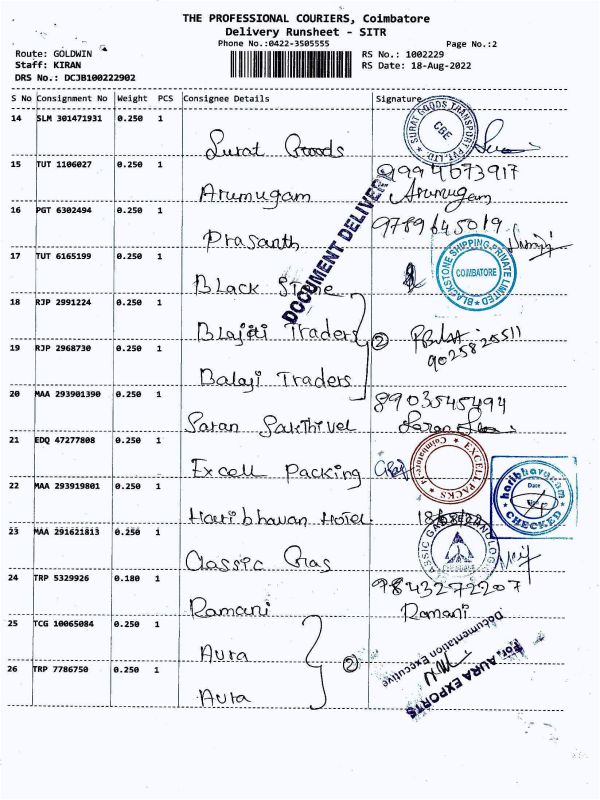 THE PROFESSIONAL COURIERS, Coimbatore
Delivery Runsheet - SITR
Phone No.:0422-3505555 Page No.:2
Route: GOLDWIN RS No.: 1002229
Staff: KIRAN RS Date: 18-Aug-2022
DRS No.: DCJB100222902
S No Consignment No Weight PCS Consignee Details Signature
14 SLM 301471931 0.250 1 Surat Goods
SURAT GOODS TRANSPORT PVT. LTD.
CBE
15 TUT 1106027 0.250 1 Arumugam 9994673917
Arumugam
16 PGT 6302494 0.250 1 Prasanth 9789645019
DOCUMENT DELIVERY
17 TUT 6165199 0.250 1 Black Stone
BLACKSTONE SHIPPING PRIVATE LIMITED
COIMBATORE
18 RJP 2991224 0.250 1 Blajdi Traders
2
9025825511
19 RJP 2968730 0.250 1 Balaji Traders
20 MAA 293901390 0.250 1 Saran Sakthivel 8903545494
21 EDQ 47277808 0.250 1 Excell Packing
EXCELL PACKS
Coimbatore
22 MAA 293919801 0.250 1 Haribhavan Hotel
haribhavanam
Date
CHECKED
23 MAA 291621813 0.250 1 Classic Gas
24 TRP 5329926 0.180 1 Ramani 9843272207
Ramani
25 TCG 10065084 0.250 1 Aura
2
26 TRP 7786750 0.250 1 Aura
For, AURA EXPORTS
Documentation Executive